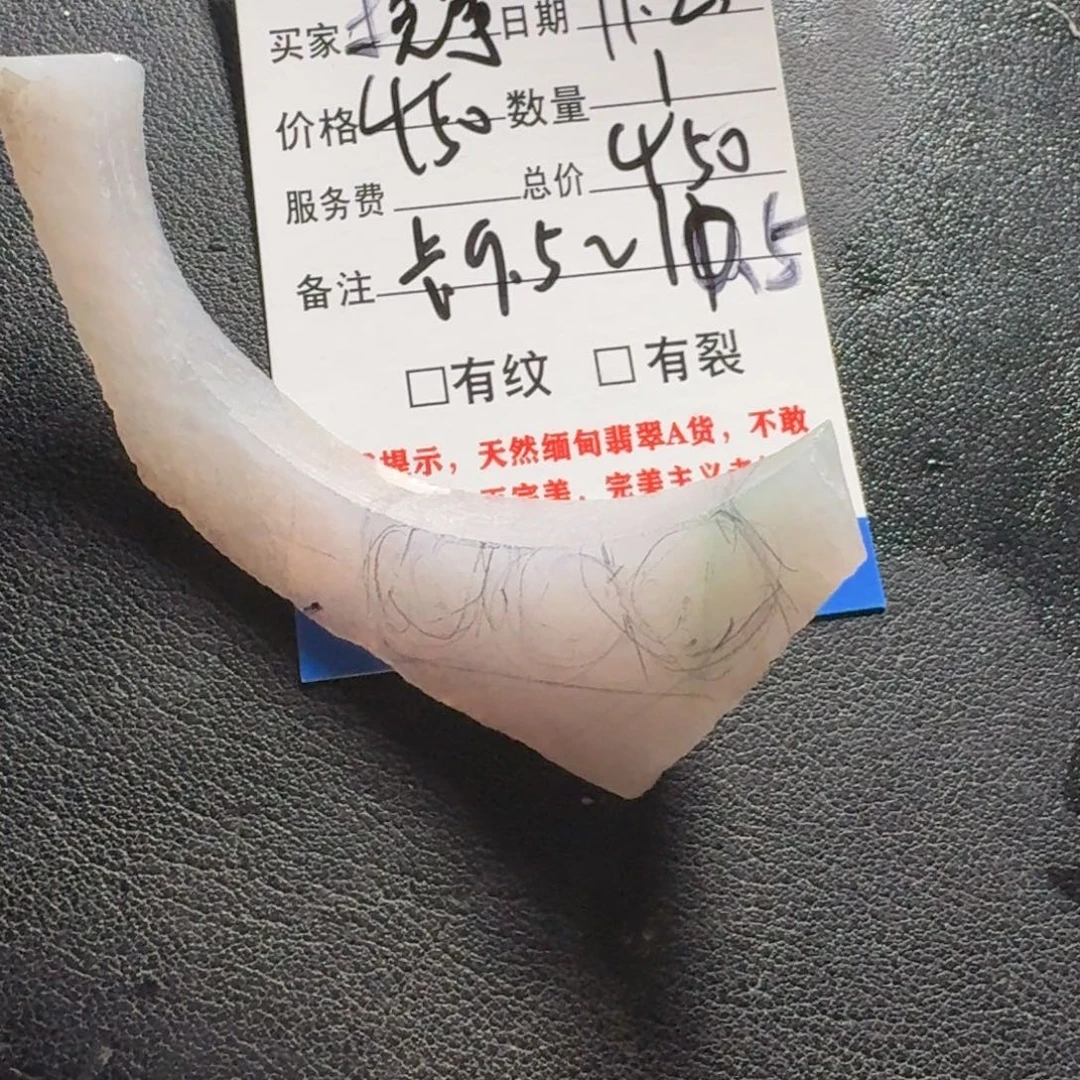 买家 日期 11.
价格 450 数量 1
服务费 总价 450
备注 长9.5~10.5
□有纹 □有裂
提示，天然缅甸翡翠A货，不敢
完美，完美主义